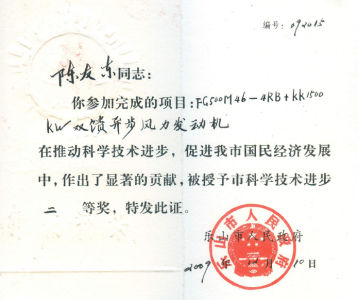 编号: 092015
陈友东同志:
你参加完成的项目: FG500M46-4RB+KK1500
KW双馈异步风力发动机
在推动科学技术进步, 促进我市国民经济发展
中, 作出了显著的贡献, 被授予市科学技术进步
二 等奖, 特发此证。
乐山市人民政府
2009年 月10日
乐山市人民政府